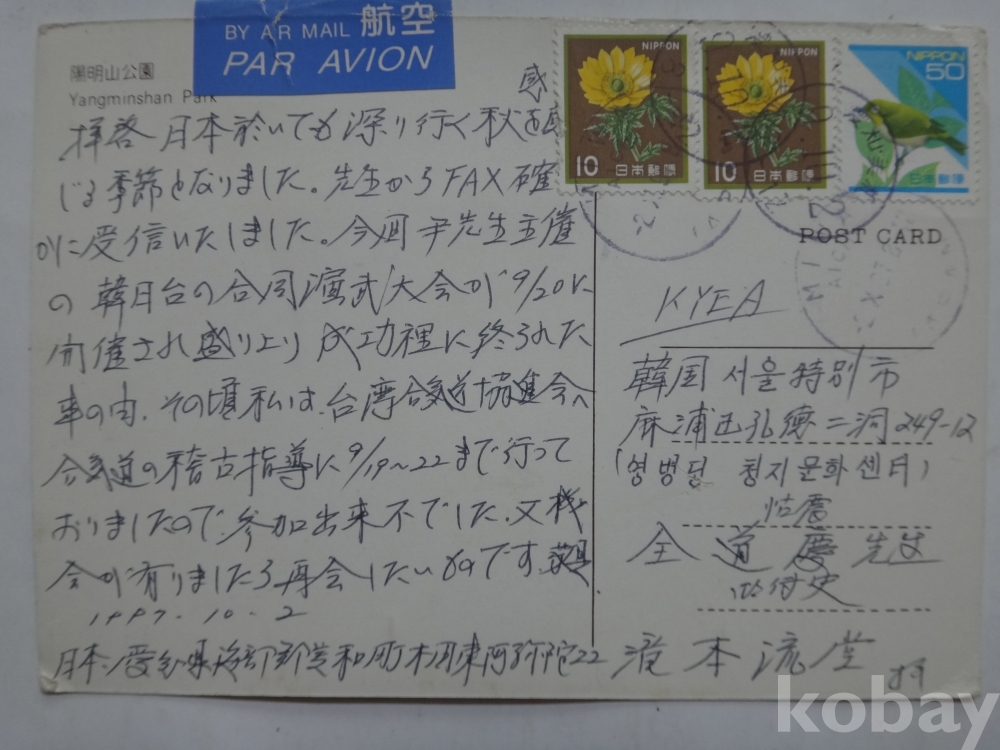 BY AIR MAIL 航空
PAR AVION
陽明山公園
Yangminshan Park
NIPPON
10 日本郵便
NIPPON
10 日本郵便
NIPPON
50
日本郵便
感
拝啓 日本於いても深り行く秋を
じる季節となりました。先生からFAX確
かに受信いたしました。今回尹先生主催
の韓日台の合同演武大会が9/20に
開催され盛り上り成功裡に終られた
事の由、その頃私は、台湾合気道協進会へ
合気道の稽古指導に9/19~22まで行って
おりましたので、参加出来不でした。又機
会が有りましたら再会したいものです。
1997.10.2
日本愛知県海部郡美和町木折東阿弥陀22
滝本流堂
拝
POST CARD
KYEA
韓国 서울特別市
麻浦区孔徳二洞249-12
(영병당 청지문화센터)
全道慶先生
kobay